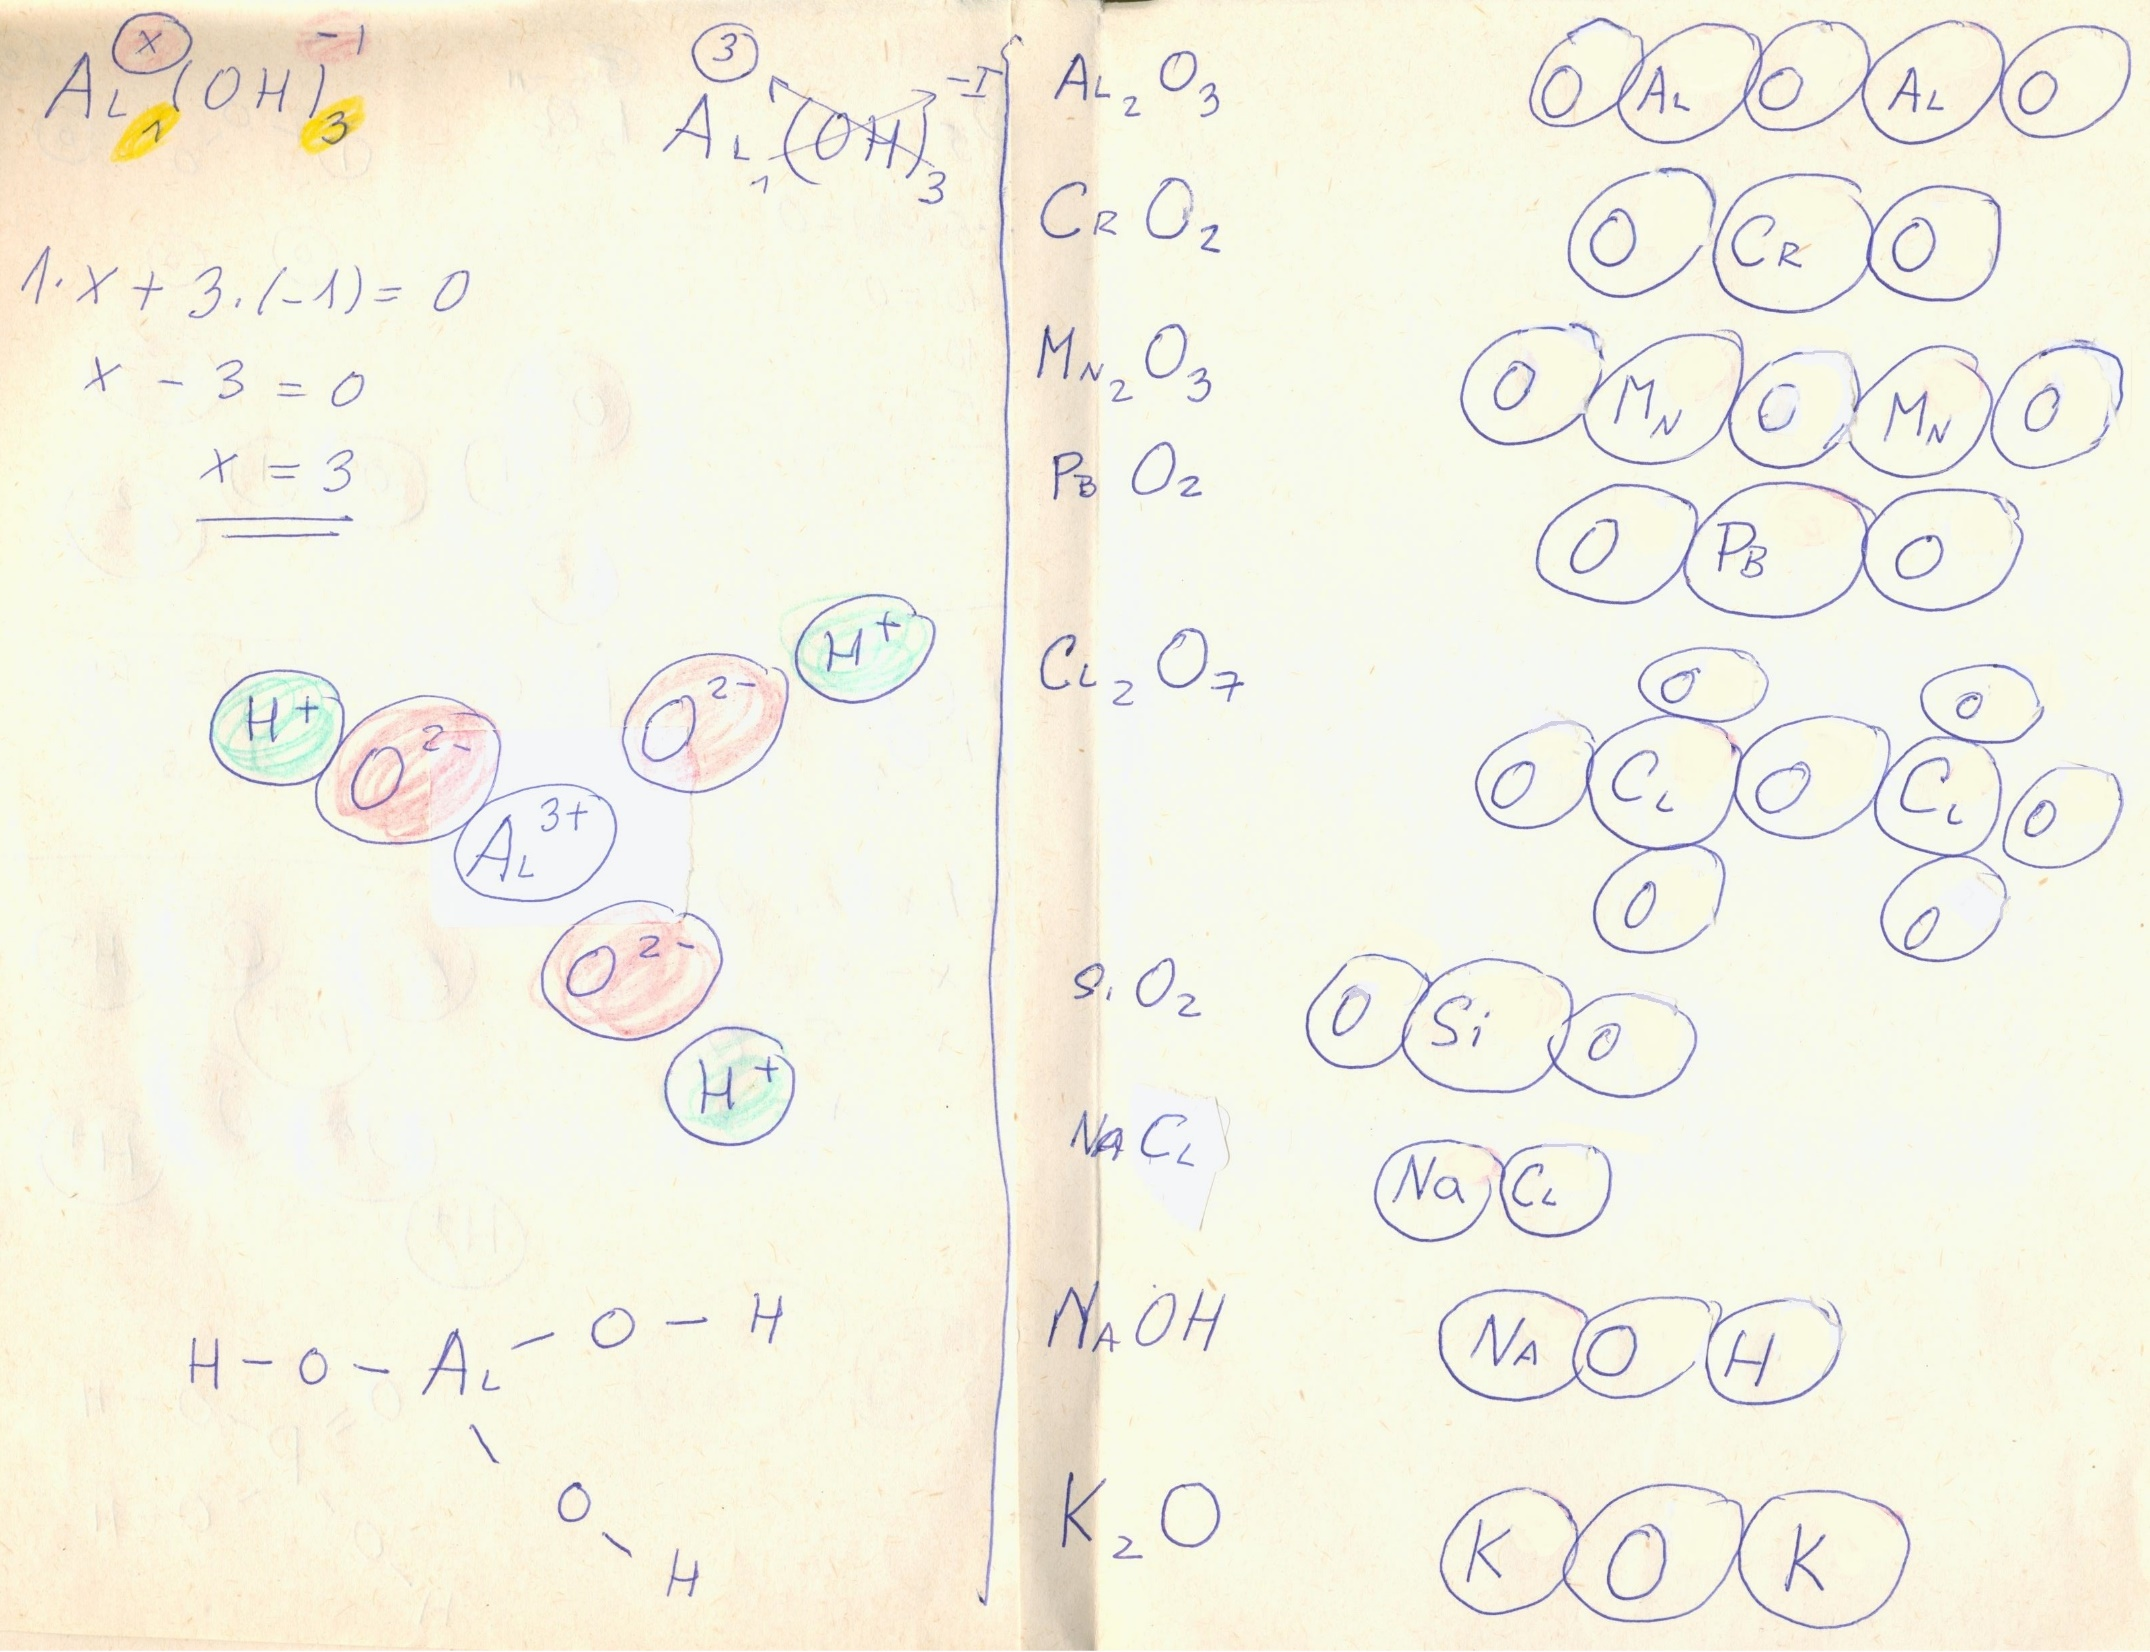 x -1
AL1(OH)3
3 -I
AL1(OH)3
1·x + 3·(-1) = 0
x - 3 = 0
x = 3
H+
H+ O2- O2-
AL3+
O2-
H+
H-O-AL-O-H
\
O
\
H
AL2O3 O AL O AL O
CR O2 O CR O
MN2O3 O MN O MN O
PB O2 O PB O
CL2O7 O O
O CL O CL O
O O
Si O2 O Si O
NA CL Na CL
NA OH NA O H
K2O K O K